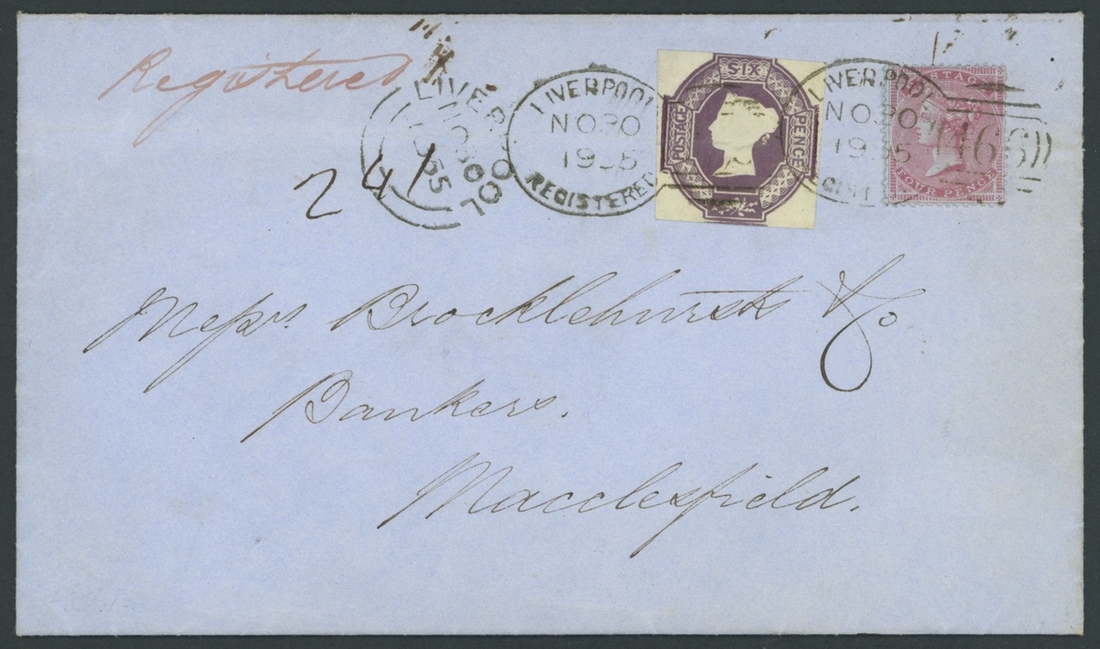 Registered
241
LIVERPOOL
NO 30
55
LIVERPOOL
NO 30
1955
REGISTERED
SIX
POSTAGE
PENCE
LIVERPOOL
NO 30
POSTAGE
FOUR PENCE
466
Messrs. Brocklehurst & Co
Bankers.
Macclesfield.